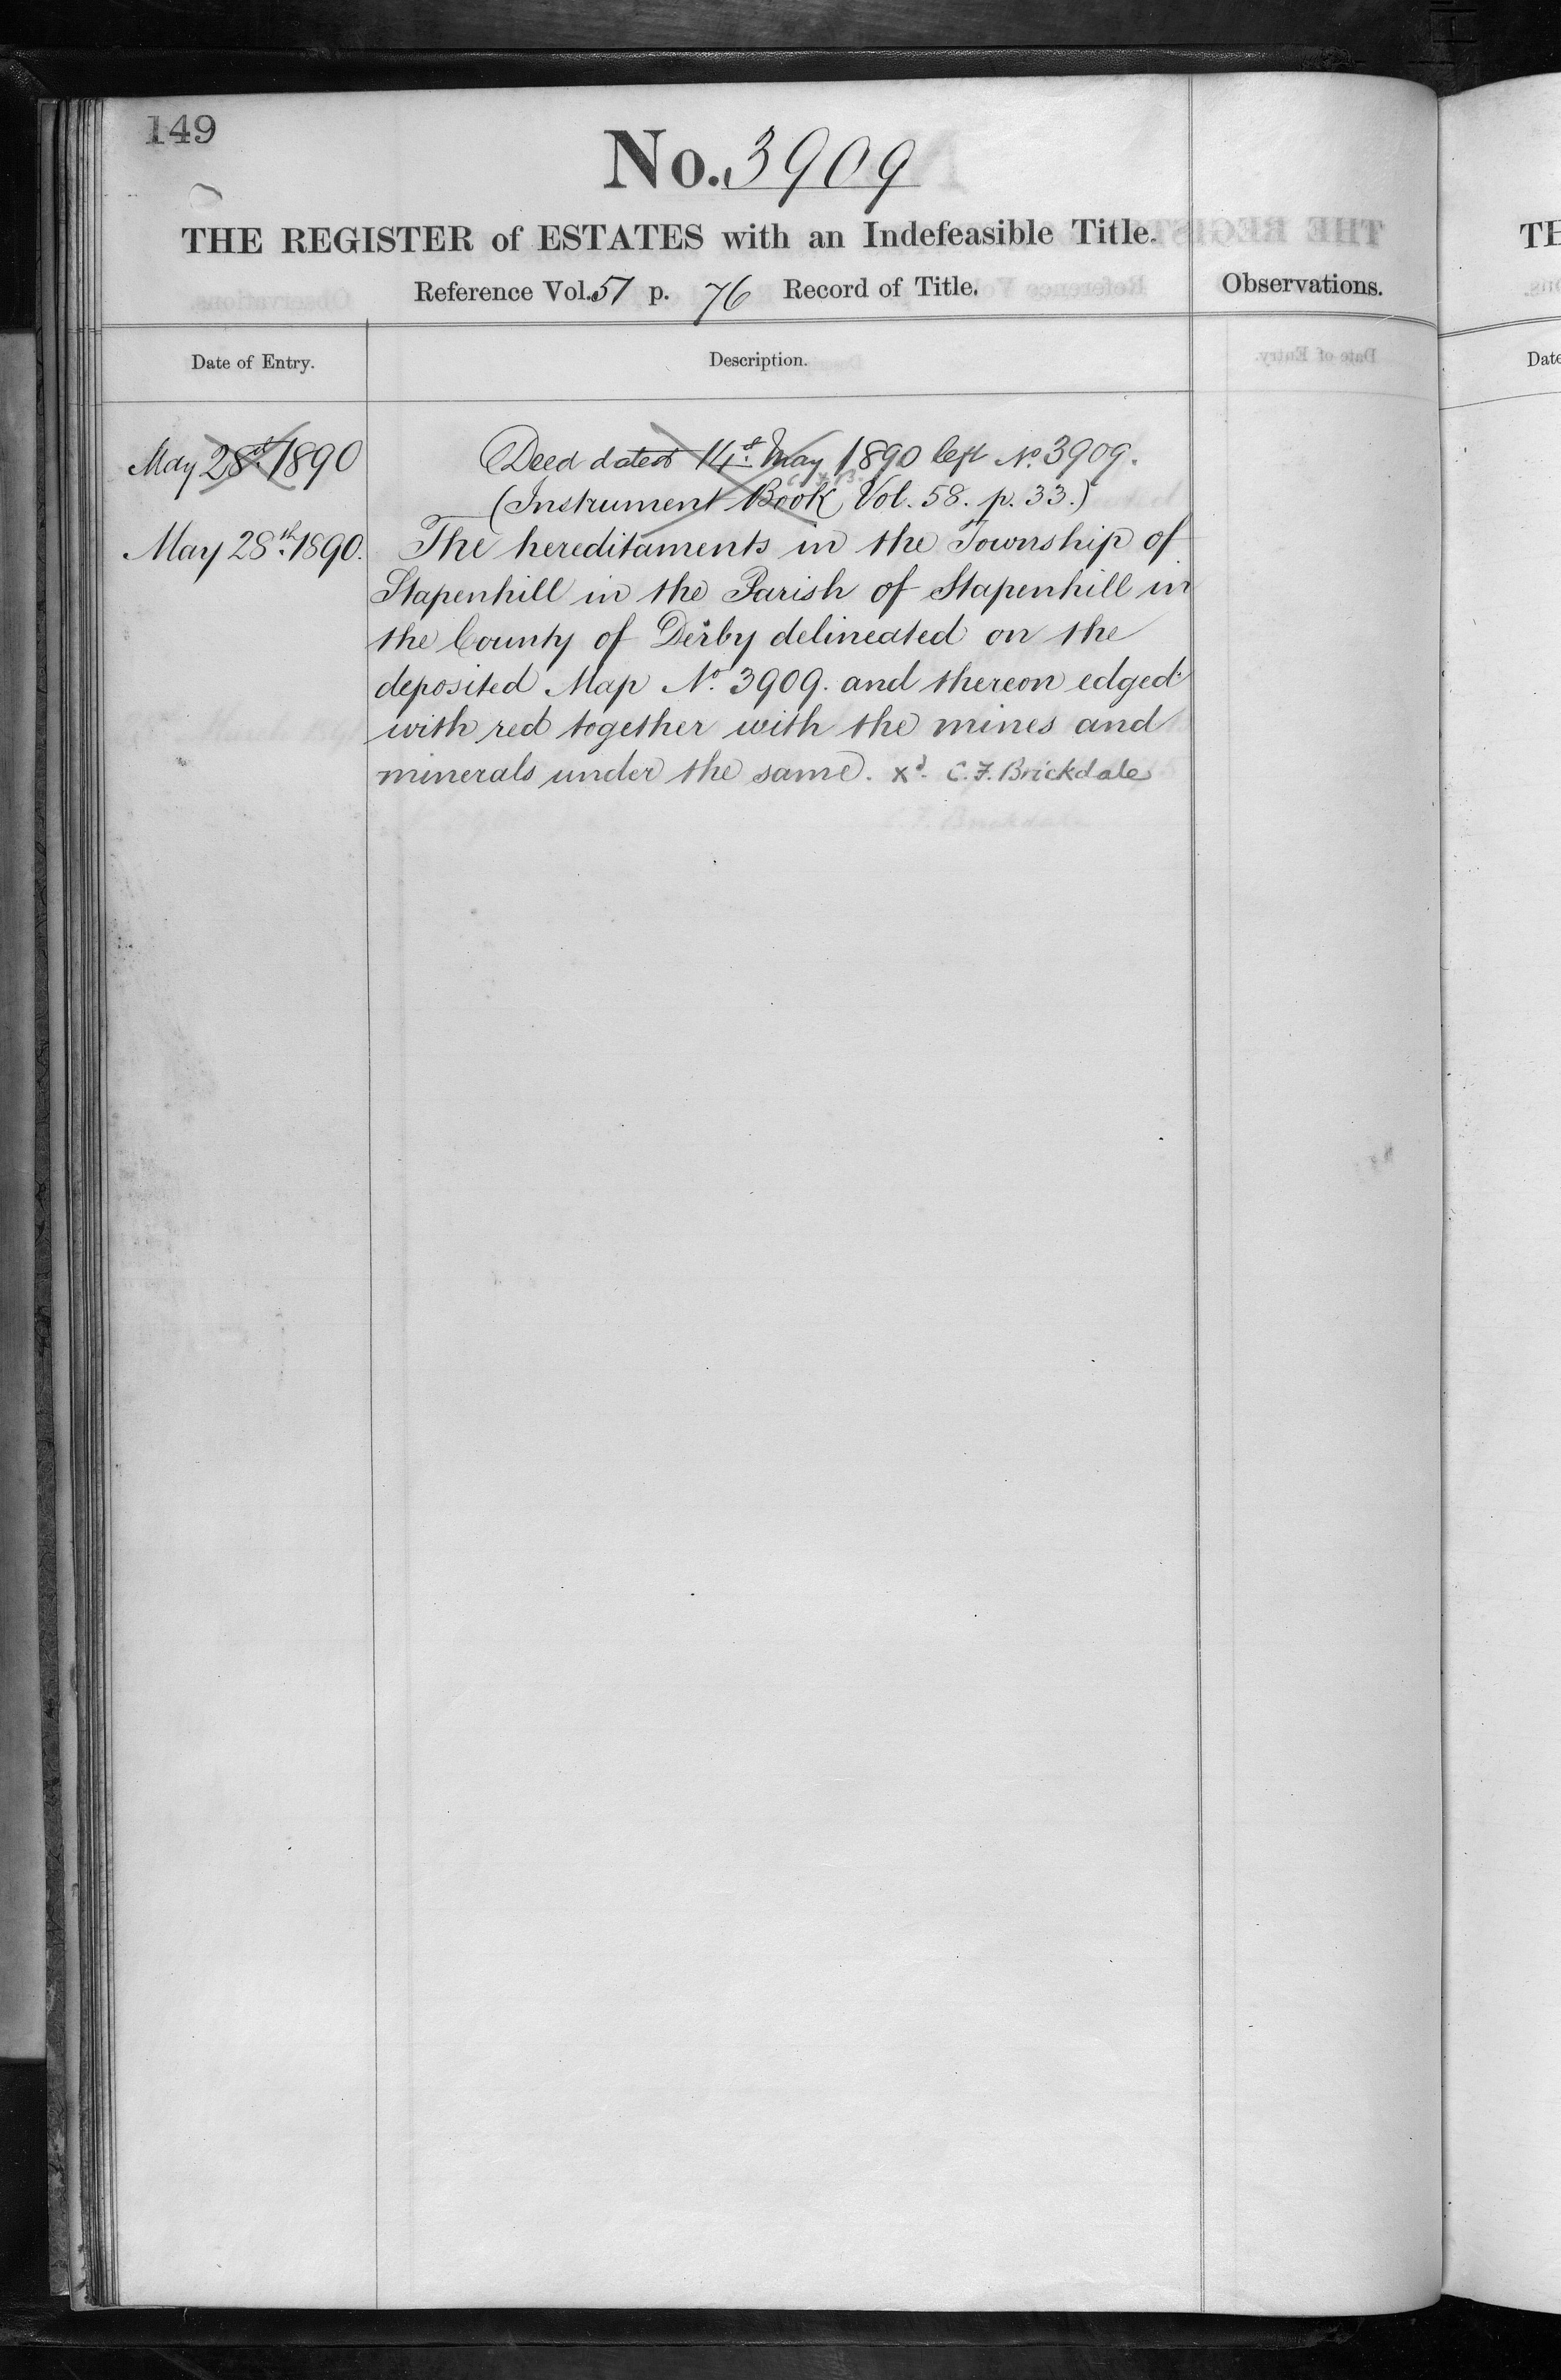 149
No. 3909
THE REGISTER of ESTATES with an Indefeasible Title.
Reference Vol. 57 p. 76 Record of Title.
Observations.
Date of Entry.
Description.
May 28th 1890
Deed dated 14th May 1890 left No. 3909.
C.F.B.
(Instrument Book Vol. 58. p. 33.)
May 28th 1890.
The hereditaments in the Township of
Stapenhill in the Parish of Stapenhill in
the County of Derby delineated on the
deposited Map No. 3909. and thereon edged
with red together with the mines and
minerals under the same. Xd. C.F. Brickdale
TH
Date